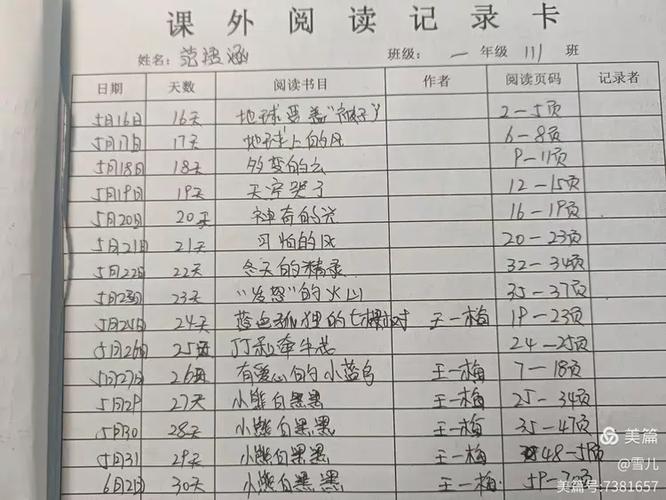 课外阅读记录卡
姓名: 范语涵 班级: 一 年级 111 班
日期 天数 阅读书目 作者 阅读页码 记录者
5月16日 16天 地球要盖"被子" 2-5页
5月17日 17天 地球上的风 6-8页
5月18日 18天 多变的云 9-11页
5月19日 19天 天空哭了 12-15页
5月20日 20天 神奇的光 16-19页
5月21日 21天 可怕的风 20-23页
5月22日 22天 冬天的精录 32-34页
5月23日 23天 "发怒"的火山 35-37页
5月24日 24天 蓝色狐狸的七棵树 王一梅 19-23页
5月26日 25天 丁丁和牵牛花 24-25页
5月27日 26天 有爱心的小蓝鸟 王一梅 7-18页
5月29 27天 小熊白黑黑 王一梅 25-34页
5月30 28天 小熊白黑黑 王一梅 35-47页
5月31 29天 小熊白黑黑 王一梅 48-59页
6月2日 30天 小熊白黑黑 王一梅 59-页
美篇
@雪儿
美篇号:7381657